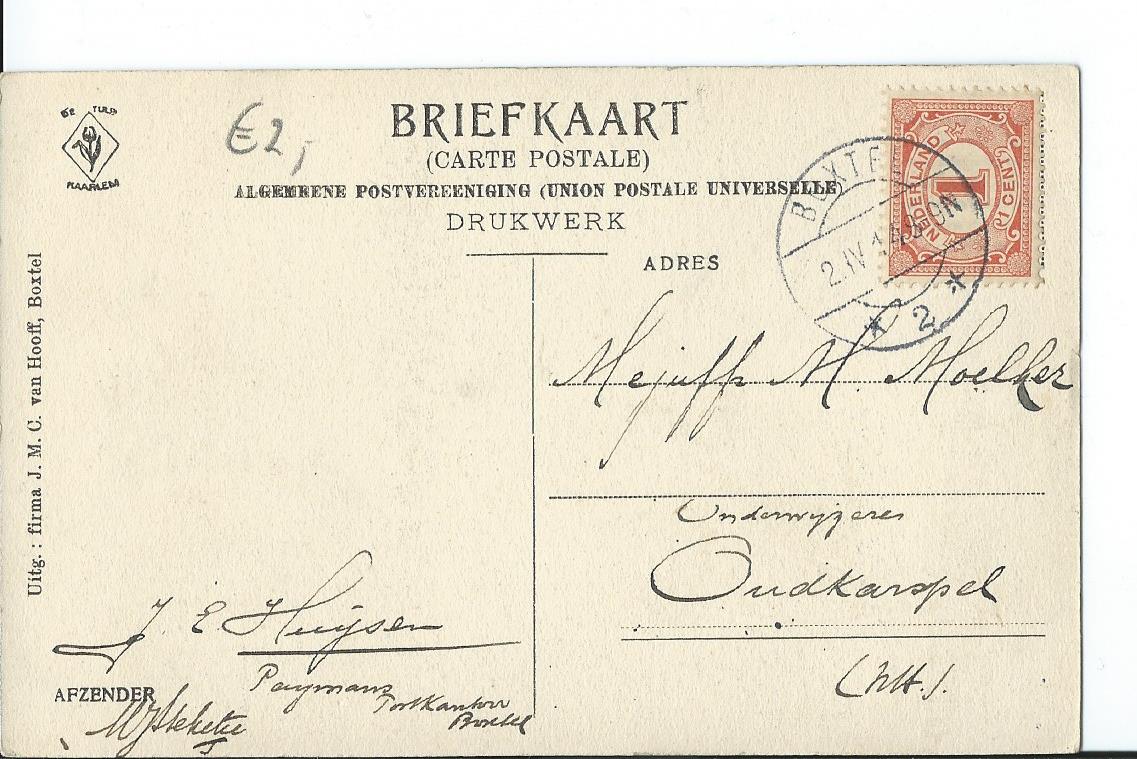 DE TULP
HAARLEM
€2,-
BRIEFKAART
(CARTE POSTALE)
ALGEMEENE POSTVEREENIGING (UNION POSTALE UNIVERSELLE)
DRUKWERK
ADRES
NEDERLAND
1
1 CENT
BOXTEL
2.IV.14
N
* 2 *
Mejuffr M. Moelker
Onderwijzeres
Oudkarspel
(NH.).
Uitg.: firma J. M. C. van Hooff, Boxtel
J. E. Huijsen
Paymans
Postkantoor
Boxtel
AFZENDER